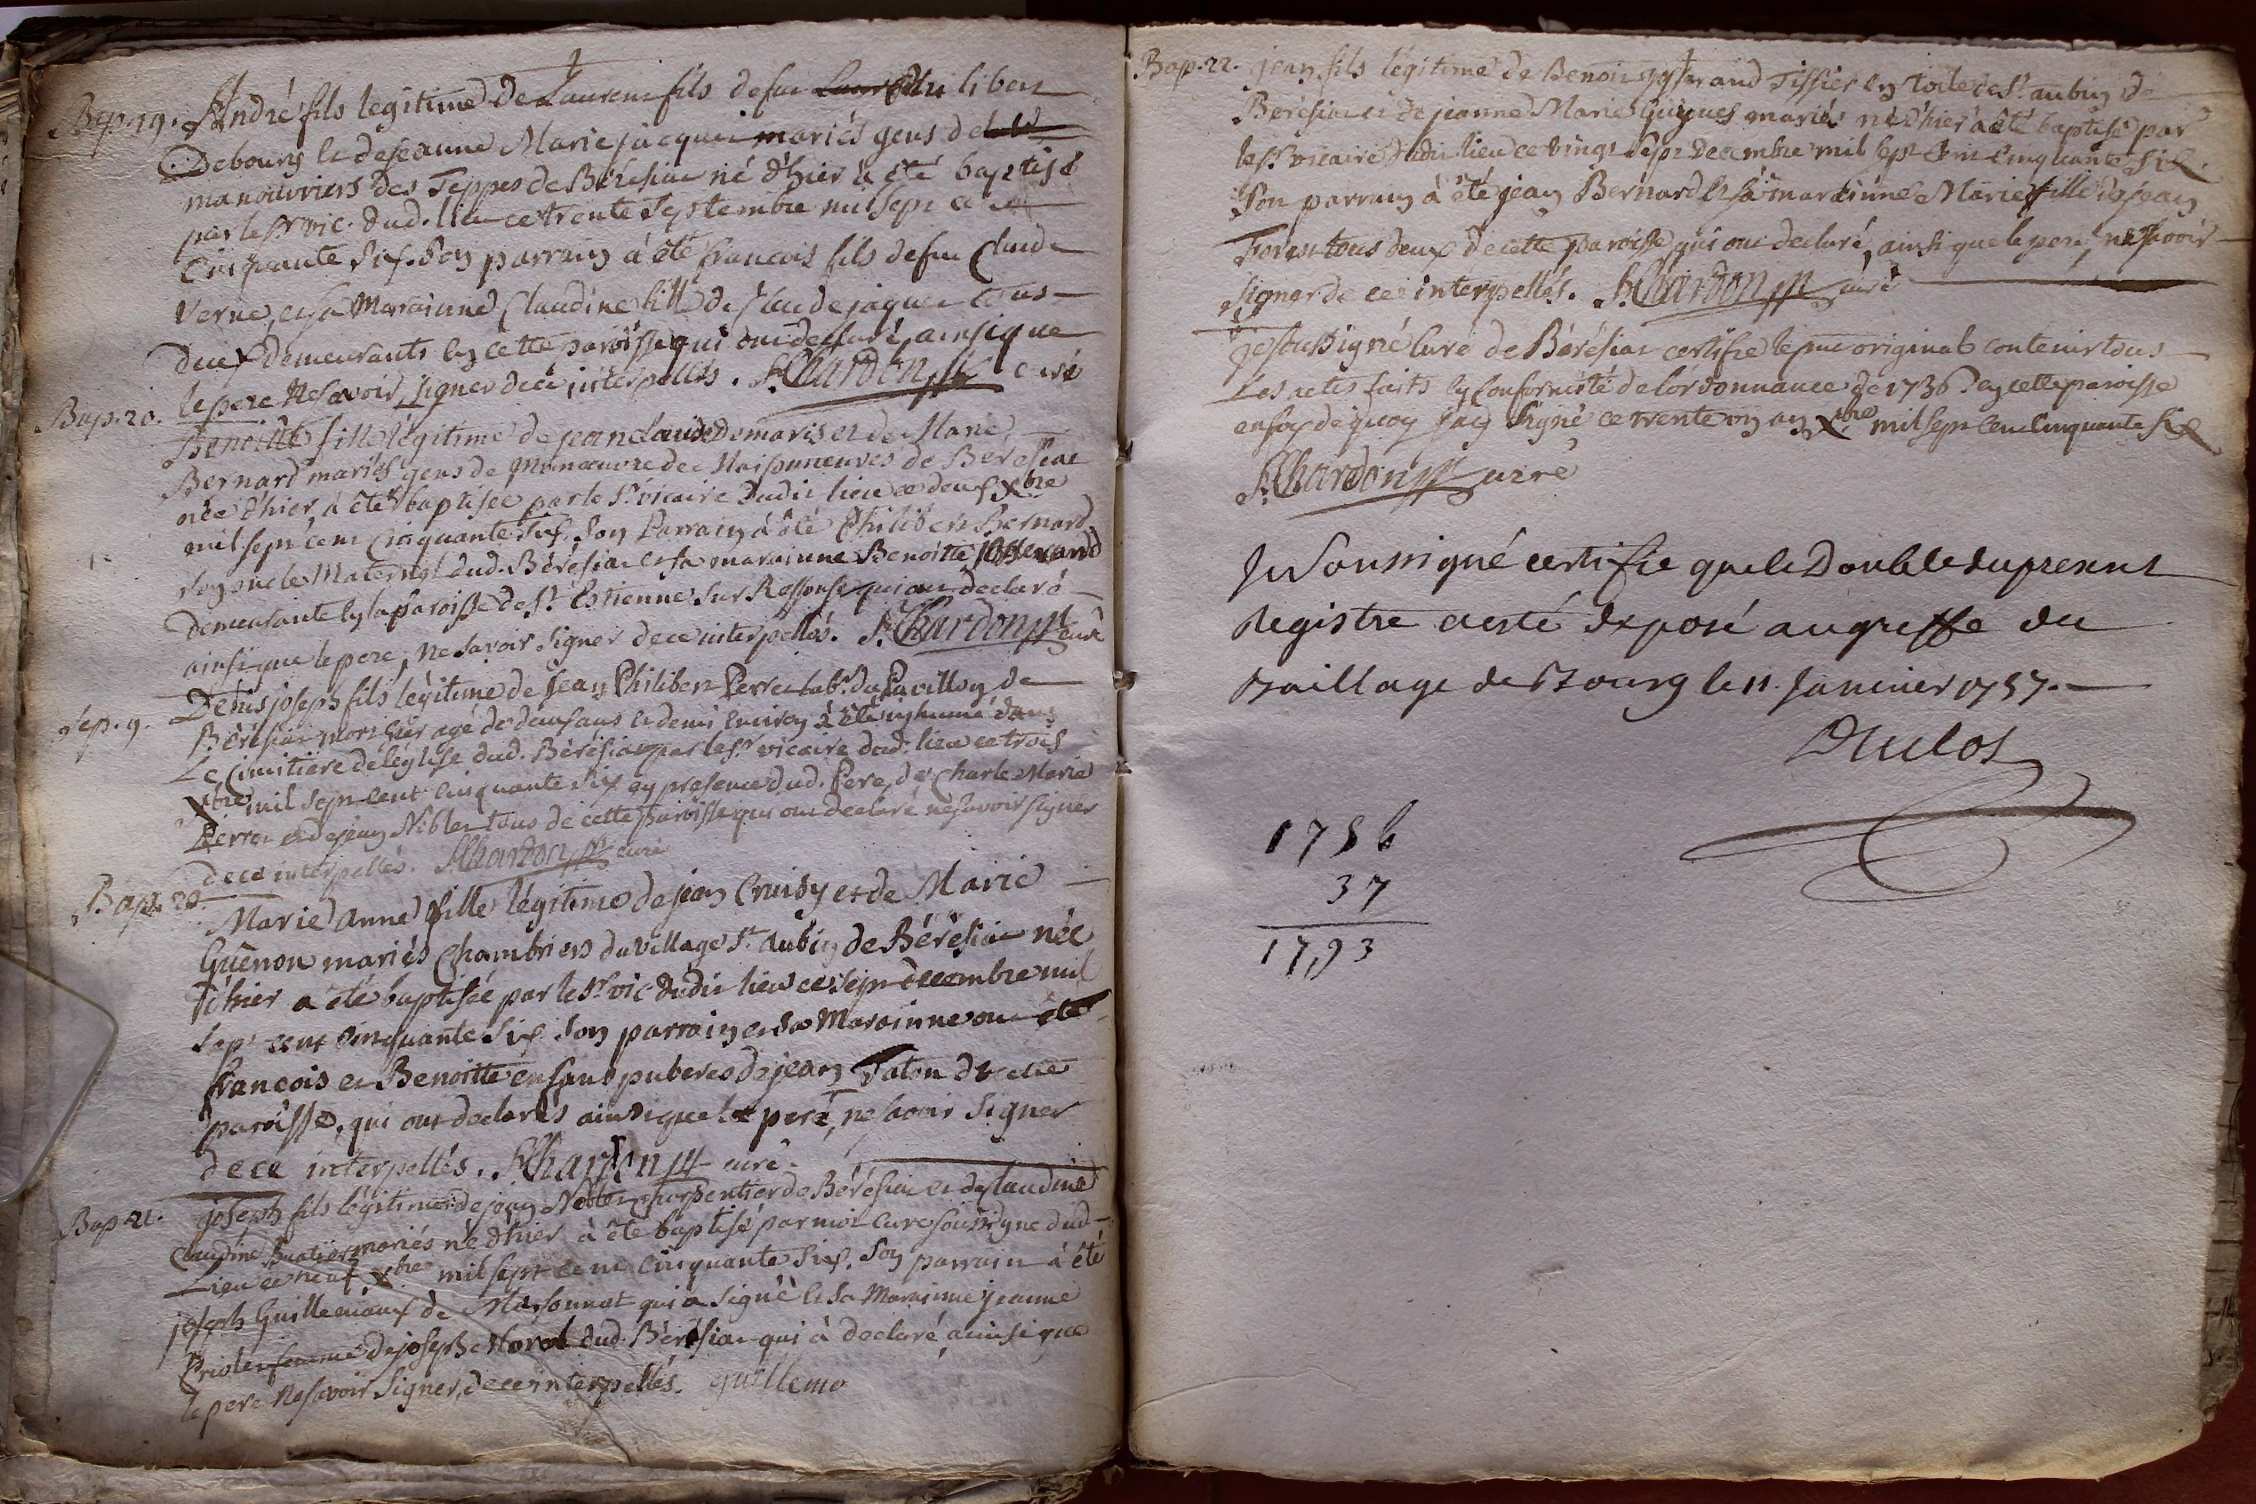 Bap. 19. André fils legitime de Laurent fils de feu
Debourg et de jeanne Marie jacquet mariés gens de
manouvriers des Teppes de Bérésiat né d'hier à été baptisé
par le Sr. vic. dud. lieu ce trente Septembre mil sept ct
Cinquante Six. Son parrain à été francois fils de feu Claude
verne, et sa Marainne Claudine fille de Claude jaquet tous
deux demeurants en cette paroisse qui ont declaré, ainsi que
le pere ne savoir signer de ce interpellés. Chardon curé
Bap. 20. Benoitte fille légitime de jean Claude Demaris et de Marie
Bernard mariés gens de Manoeuvre des Maisonneuves de Bérésiat
née d'hier à été baptisée par le Sr. vicaire dudit lieu ce deux Xbre
mil sept cent Cinquante Six. Son Parrain à été Philibert Bernard
son oncle Maternel dud. Bérésiat et sa marainne Benoitte josserand
demeurante en la paroisse de St. Estienne Sur Ressouse qui ont declaré
ainsi que le pere, ne savoir signer de ce interpellés. Chardon curé
Sep. 9. Denis joseph fils légitime de Jean Philibert Perret lab. du Pavillon de
Bérésiat mort hier agé de deux ans et demi environ à été inhumé dans
Le Cimitiere de l'église dud. Bérésiat par le Sr. vicaire dud. lieu ce trois
Xbre mil sept cent cinquante six en presence dud. Pere, de Charle Marie
Perret et de jean Niblet tous de cette paroisse qui ont declaré ne savoir signer
de ce interpellés. Chardon curé
Bap. 20 Marie anne fille légitime de jean Cruisy et de Marie
Guênon mariés Chambriers du village St. Aubin de Bérésiat née
d'hier a été baptisée par le Sr. vic dudit lieu ce sept decembre mil
sept cent cinquante six Son parrain et sa Marainne ont été
francois et Benoitte enfans puberes de jean Taton de cette
paroisse, qui ont declarés ainsi que le pere, ne savoir signer
de ce interpellés. Chardon curé
Bap. 21. joseph fils légitime de jean Noblet charpentier de Bérésiat et de Claudine
Claudine mariés né d'hier à été baptisé par moi Curé soussigné dud
Lieu ce neuf Xbre mil sept cent Cinquante Six. Son parrain à été
joseph Guillemiaux de Marsonnat qui à signé et sa Marainne jeanne
Priolet femme de joseph Morel dud. Bérésiat qui à declaré ainsi que
le pere ne savoir signer, de ce interpellés. guillemo
Bap. 22. jean fils légitime de Benoit josserand Tissier en Toile de St. aubin de
Bérésiat et de jeanne Marie Guigues mariés né d'hier à été baptisé par
le Sr. vicaire dudit lieu ce vingt sept Decembre mil sept Cent Cinquante Six
Son parrain à été jean Bernard et sa marainne Marie fille de jean
Forest tous deux de cette paroisse qui ont declaré, ainsi que le pere, ne savoir
signer de ce interpellés. Chardon curé
je soussigné Curé de Bérésiat certifie le pnt original contenir tous
Les actes faits en conformité de l'ordonnance de 1736 en cette paroisse
en foy de quoy j'ay signé ce trente un Xbre mil sept cent Cinquante Six
Chardon curé
Je Soussigné certifie que le Double du present
Registre a esté déposé au greffe du
Baillage de Bourg le 11. Janvier 1757.
Duclos
1756
37
17,93